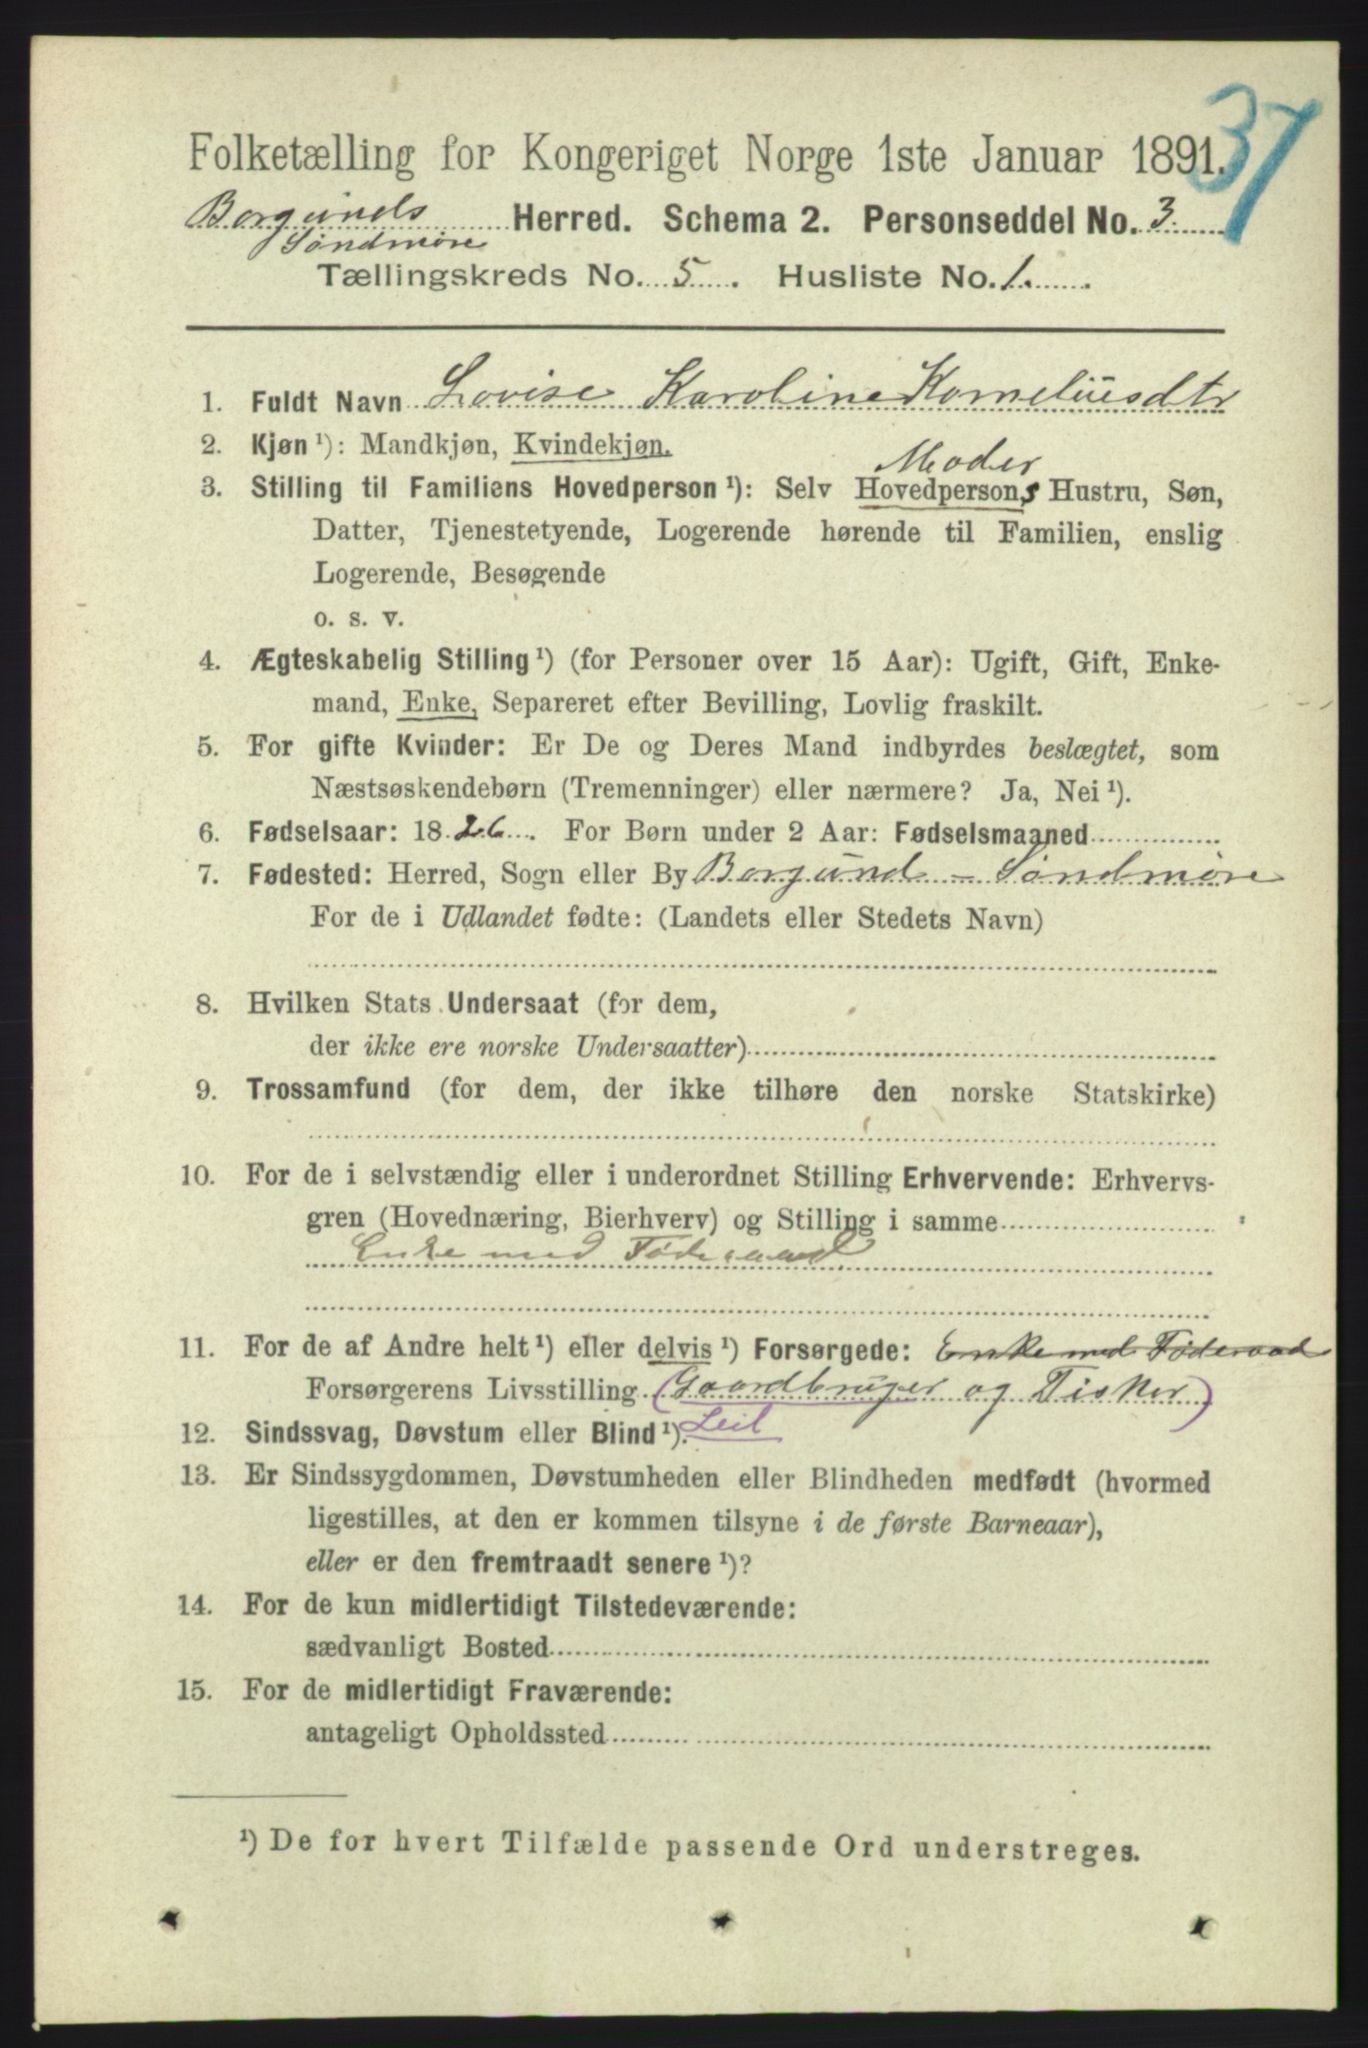 37
Folketælling for Kongeriget Norge 1ste Januar 1891.
Borgunds Herred. Schema 2. Personseddel No. 3.
Søndmøre
Tællingskreds No. 5. Husliste No. 1.
1. Fuldt Navn Lovise Karoline Korneliusdtr
2. Kjøn ¹): Mandkjøn, Kvindekjøn.
Moder
3. Stilling til Familiens Hovedperson ¹): Selv Hovedpersons Hustru, Søn,
Datter, Tjenestetyende, Logerende hørende til Familien, enslig
Logerende, Besøgende
o. s. v.
4. Ægteskabelig Stilling ¹) (for Personer over 15 Aar): Ugift, Gift, Enke-
mand, Enke, Separeret efter Bevilling, Lovlig fraskilt.
5. For gifte Kvinder: Er De og Deres Mand indbyrdes beslægtet, som
Næstsøskendebørn (Tremenninger) eller nærmere? Ja, Nei ¹).
6. Fødselsaar: 1826. For Børn under 2 Aar: Fødselsmaaned
7. Fødested: Herred, Sogn eller By Borgund - Søndmøre
For de i Udlandet fødte: (Landets eller Stedets Navn)
8. Hvilken Stats Undersaat (for dem,
der ikke ere norske Undersaatter)
9. Trossamfund (for dem, der ikke tilhøre den norske Statskirke)
10. For de i selvstændig eller i underordnet Stilling Erhvervende: Erhvervs-
gren (Hovednæring, Bierhverv) og Stilling i samme
Enke med Føderaad
11. For de af Andre helt ¹) eller delvis ¹) Forsørgede: Enke med Føderaad
Forsørgerens Livsstilling (Gaardbruger og Fisker)
Leil
12. Sindssvag, Døvstum eller Blind ¹).
13. Er Sindssygdommen, Døvstumheden eller Blindheden medfødt (hvormed
ligestilles, at den er kommen tilsyne i de første Barneaar),
eller er den fremtraadt senere ¹)?
14. For de kun midlertidigt Tilstedeværende:
sædvanligt Bosted
15. For de midlertidigt Fraværende:
antageligt Opholdssted
¹) De for hvert Tilfælde passende Ord understreges.